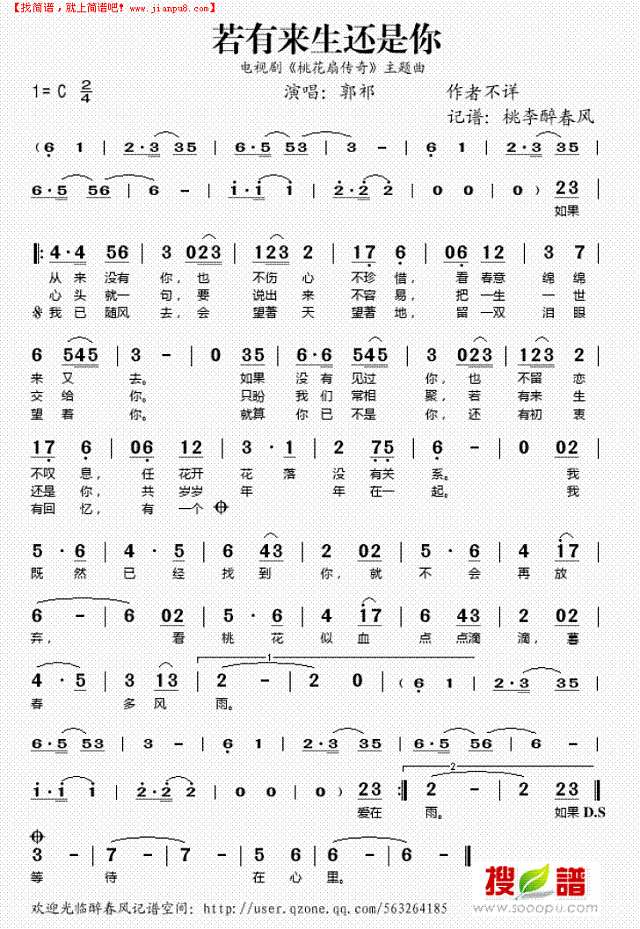 【找简谱,就上简谱吧! www.jianpu8.com】
若有来生还是你
电视剧《桃花扇传奇》主题曲
1=C 2/4 演唱: 郭祁 作者不详
记谱: 桃李醉春风
( 6 1 | 2·3 35 | 6·5 53 | 3 - | 6 1 | 2·3 35 |
6·5 56 | 6 - | i·i i | 2·2 2 | 0 0 | 0 0 ) 23 |
如果
‖: 4·4 56 | 3 023 | 123 2 | 17 6 | 06 12 | 3 7 |
从来 没有 你, 也 不伤 心 不珍 惜, 看 春意 绵 绵
心头 就一 句, 要 说出 来 不容 易, 把 一生 一 世
𝄋我已 随风 去, 会 望着 天 望著 地, 留 一双 泪 眼
6 545 | 3 - | 0 35 | 6·6 545 | 3 023 | 123 2 |
来 又 去。 如果 没有 见过 你, 也 不留 恋
交 给 你。 只盼 我们 常相 聚, 若 有来 生
望 着 你。 就算 你已 不是 你, 还 有初 衷
17 6 | 06 12 | 3·1 | 2 75 | 6 - | 0 02 |
不叹 息, 任 花开 花 落 没 有关 系。 我
还是 你, 共 岁岁 年 年 在一 起。 我
有回 忆, 有 一个 𝄌
5·6 | 4·5 | 6 43 | 2 02 | 5·6 | 4 17 |
既 然 已 经 找 到 你, 就 不 会 再 放
6 - | 6 02 | 5·6 | 4 17 | 6 43 | 2 02 |
弃, 看 桃 花 似 血 点 点滴 滴, 暮
1
4·5 | 3 13 | 2 - | 2 0 | ( 6 1 | 2·3 35 |
春 多 风 雨。
6·5 53 | 3 - | 6 1 | 2·3 35 | 6·5 56 | 6 - |
2
i·i i | 2·2 2 | 0 0 | 0 ) 23 :‖ 2 - | 2 23 ‖
爱在 雨。 如果 D.S
𝄌
3 - | 7 - | 7 - | 5 6 | 6 - | 6 - ‖
等 待 在 心 里。
搜谱
www.sooopu.com
欢迎光临醉春风记谱空间: http://user.qzone.qq.com/563264185